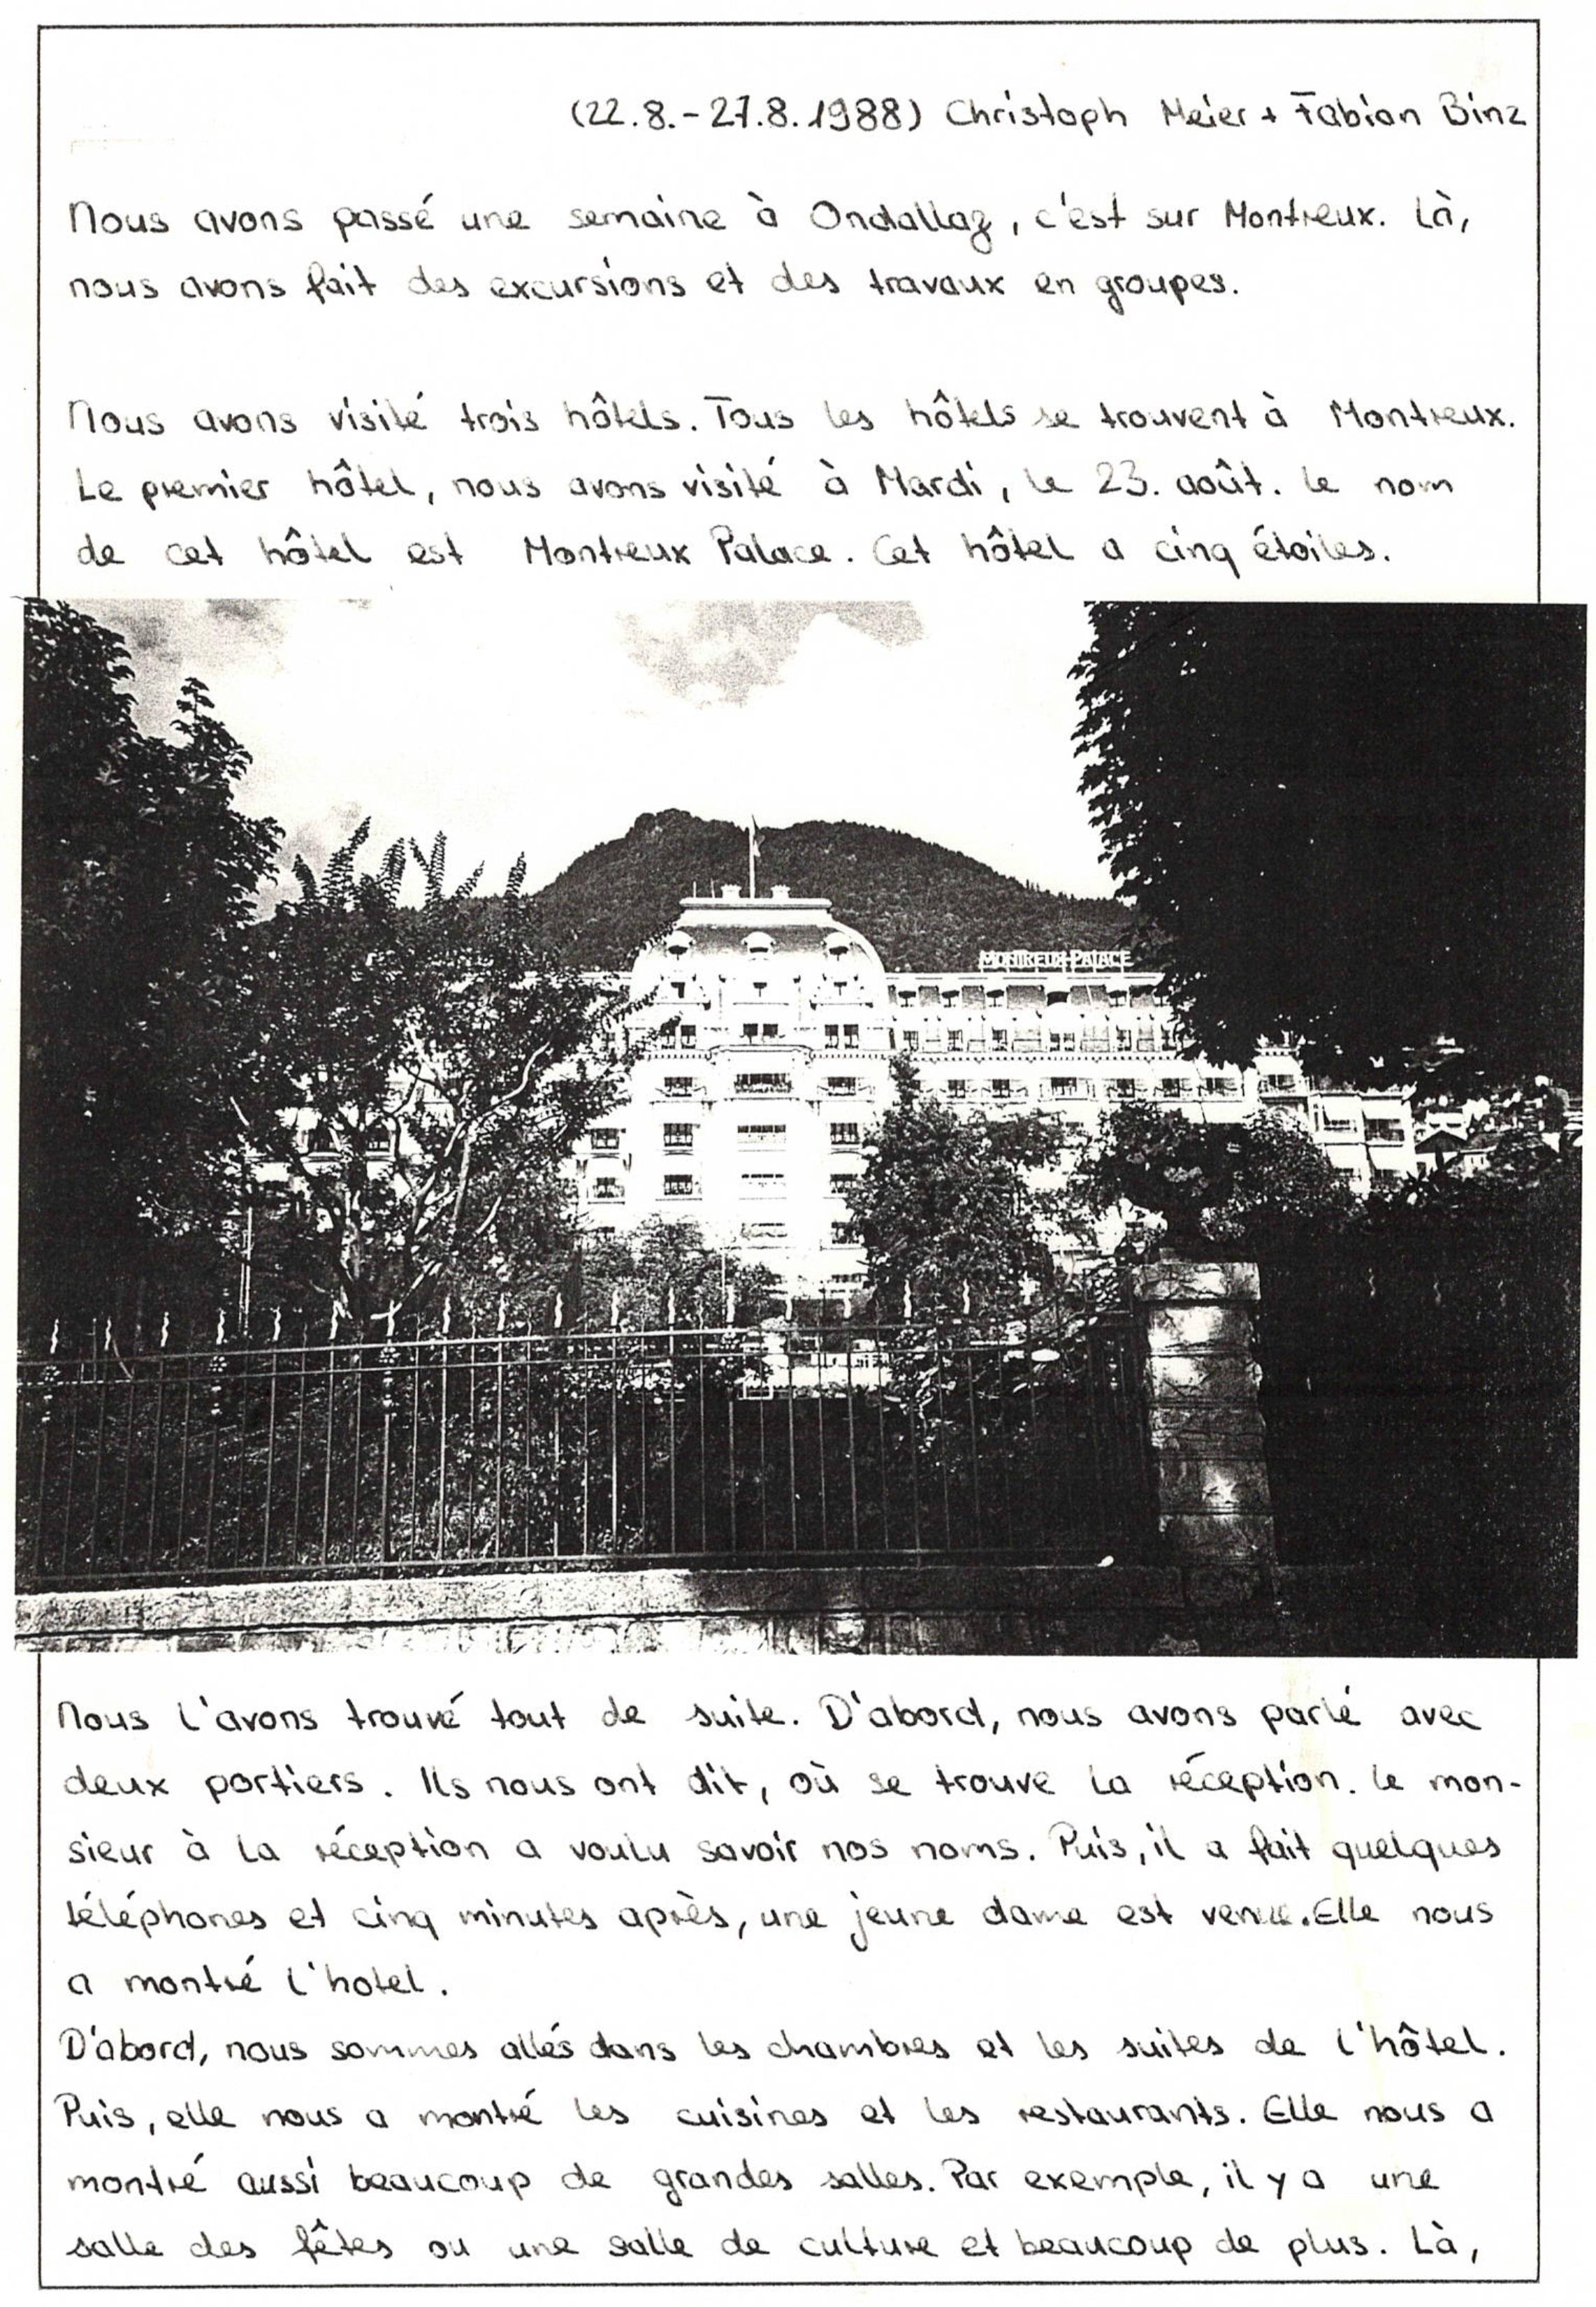 (22.8.-27.8.1988) Christoph Meier + Fabian Binz
Nous avons passé une semaine à Ondallaz, c'est sur Montreux. Là,
nous avons fait des excursions et des travaux en groupes.
Nous avons visité trois hôtels. Tous les hôtels se trouvent à Montreux.
Le premier hôtel, nous avons visité à Mardi, le 23. août. Le nom
de cet hôtel est Montreux Palace. Cet hôtel a cinq étoiles.
MONTREUX-PALACE
Nous l'avons trouvé tout de suite. D'abord, nous avons parlé avec
deux portiers. Ils nous ont dit, où se trouve la réception. Le mon-
sieur à la réception a voulu savoir nos noms. Puis, il a fait quelques
téléphones et cinq minutes après, une jeune dame est venue. Elle nous
a montré l'hotel.
D'abord, nous sommes allés dans les chambres et les suites de l'hôtel.
Puis, elle nous a montré les cuisines et les restaurants. Elle nous a
montré aussi beaucoup de grandes salles. Par exemple, il y a une
salle des fêtes ou une salle de culture et beaucoup de plus. Là,